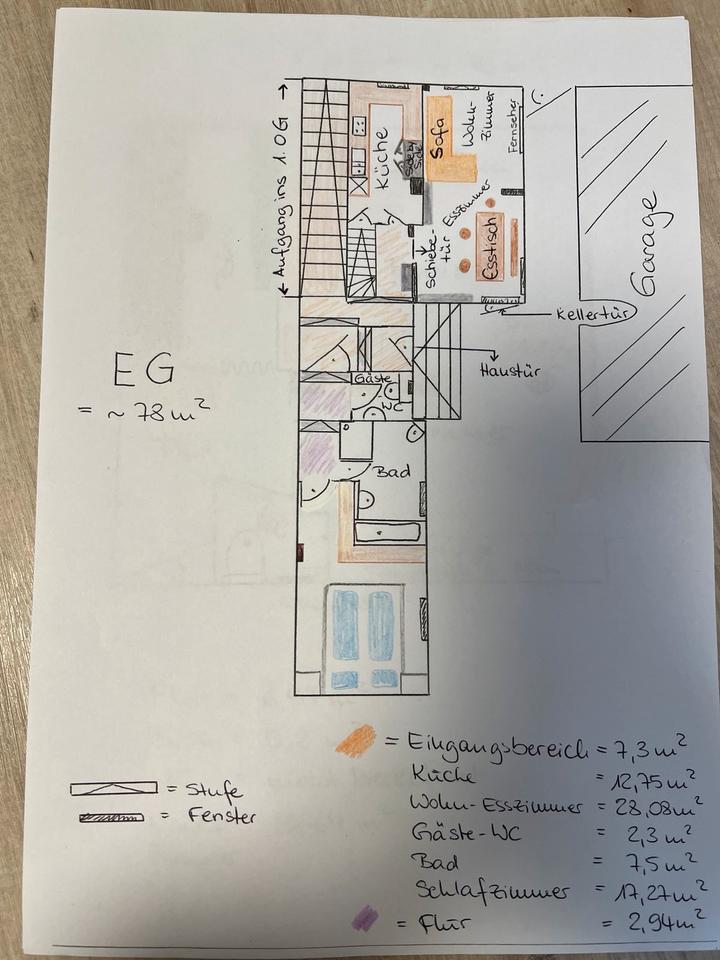 Aufgang ins 1.OG
Küche
Side by
Side
Sofa
Wohn-
zimmer
Fernseher
Esszimmer
Schiebe-
tür
Esstisch
Garage
Kellertür
Haustür
EG
= ~ 78 m²
Gäste
WC
Bad
= Stufe
= Fenster
= Eingangsbereich = 7,3 m²
Küche = 12,75 m²
Wohn-Esszimmer = 28,08 m²
Gäste-WC = 2,3 m²
Bad = 7,5 m²
Schlafzimmer = 17,27 m²
= Flur = 2,94 m²